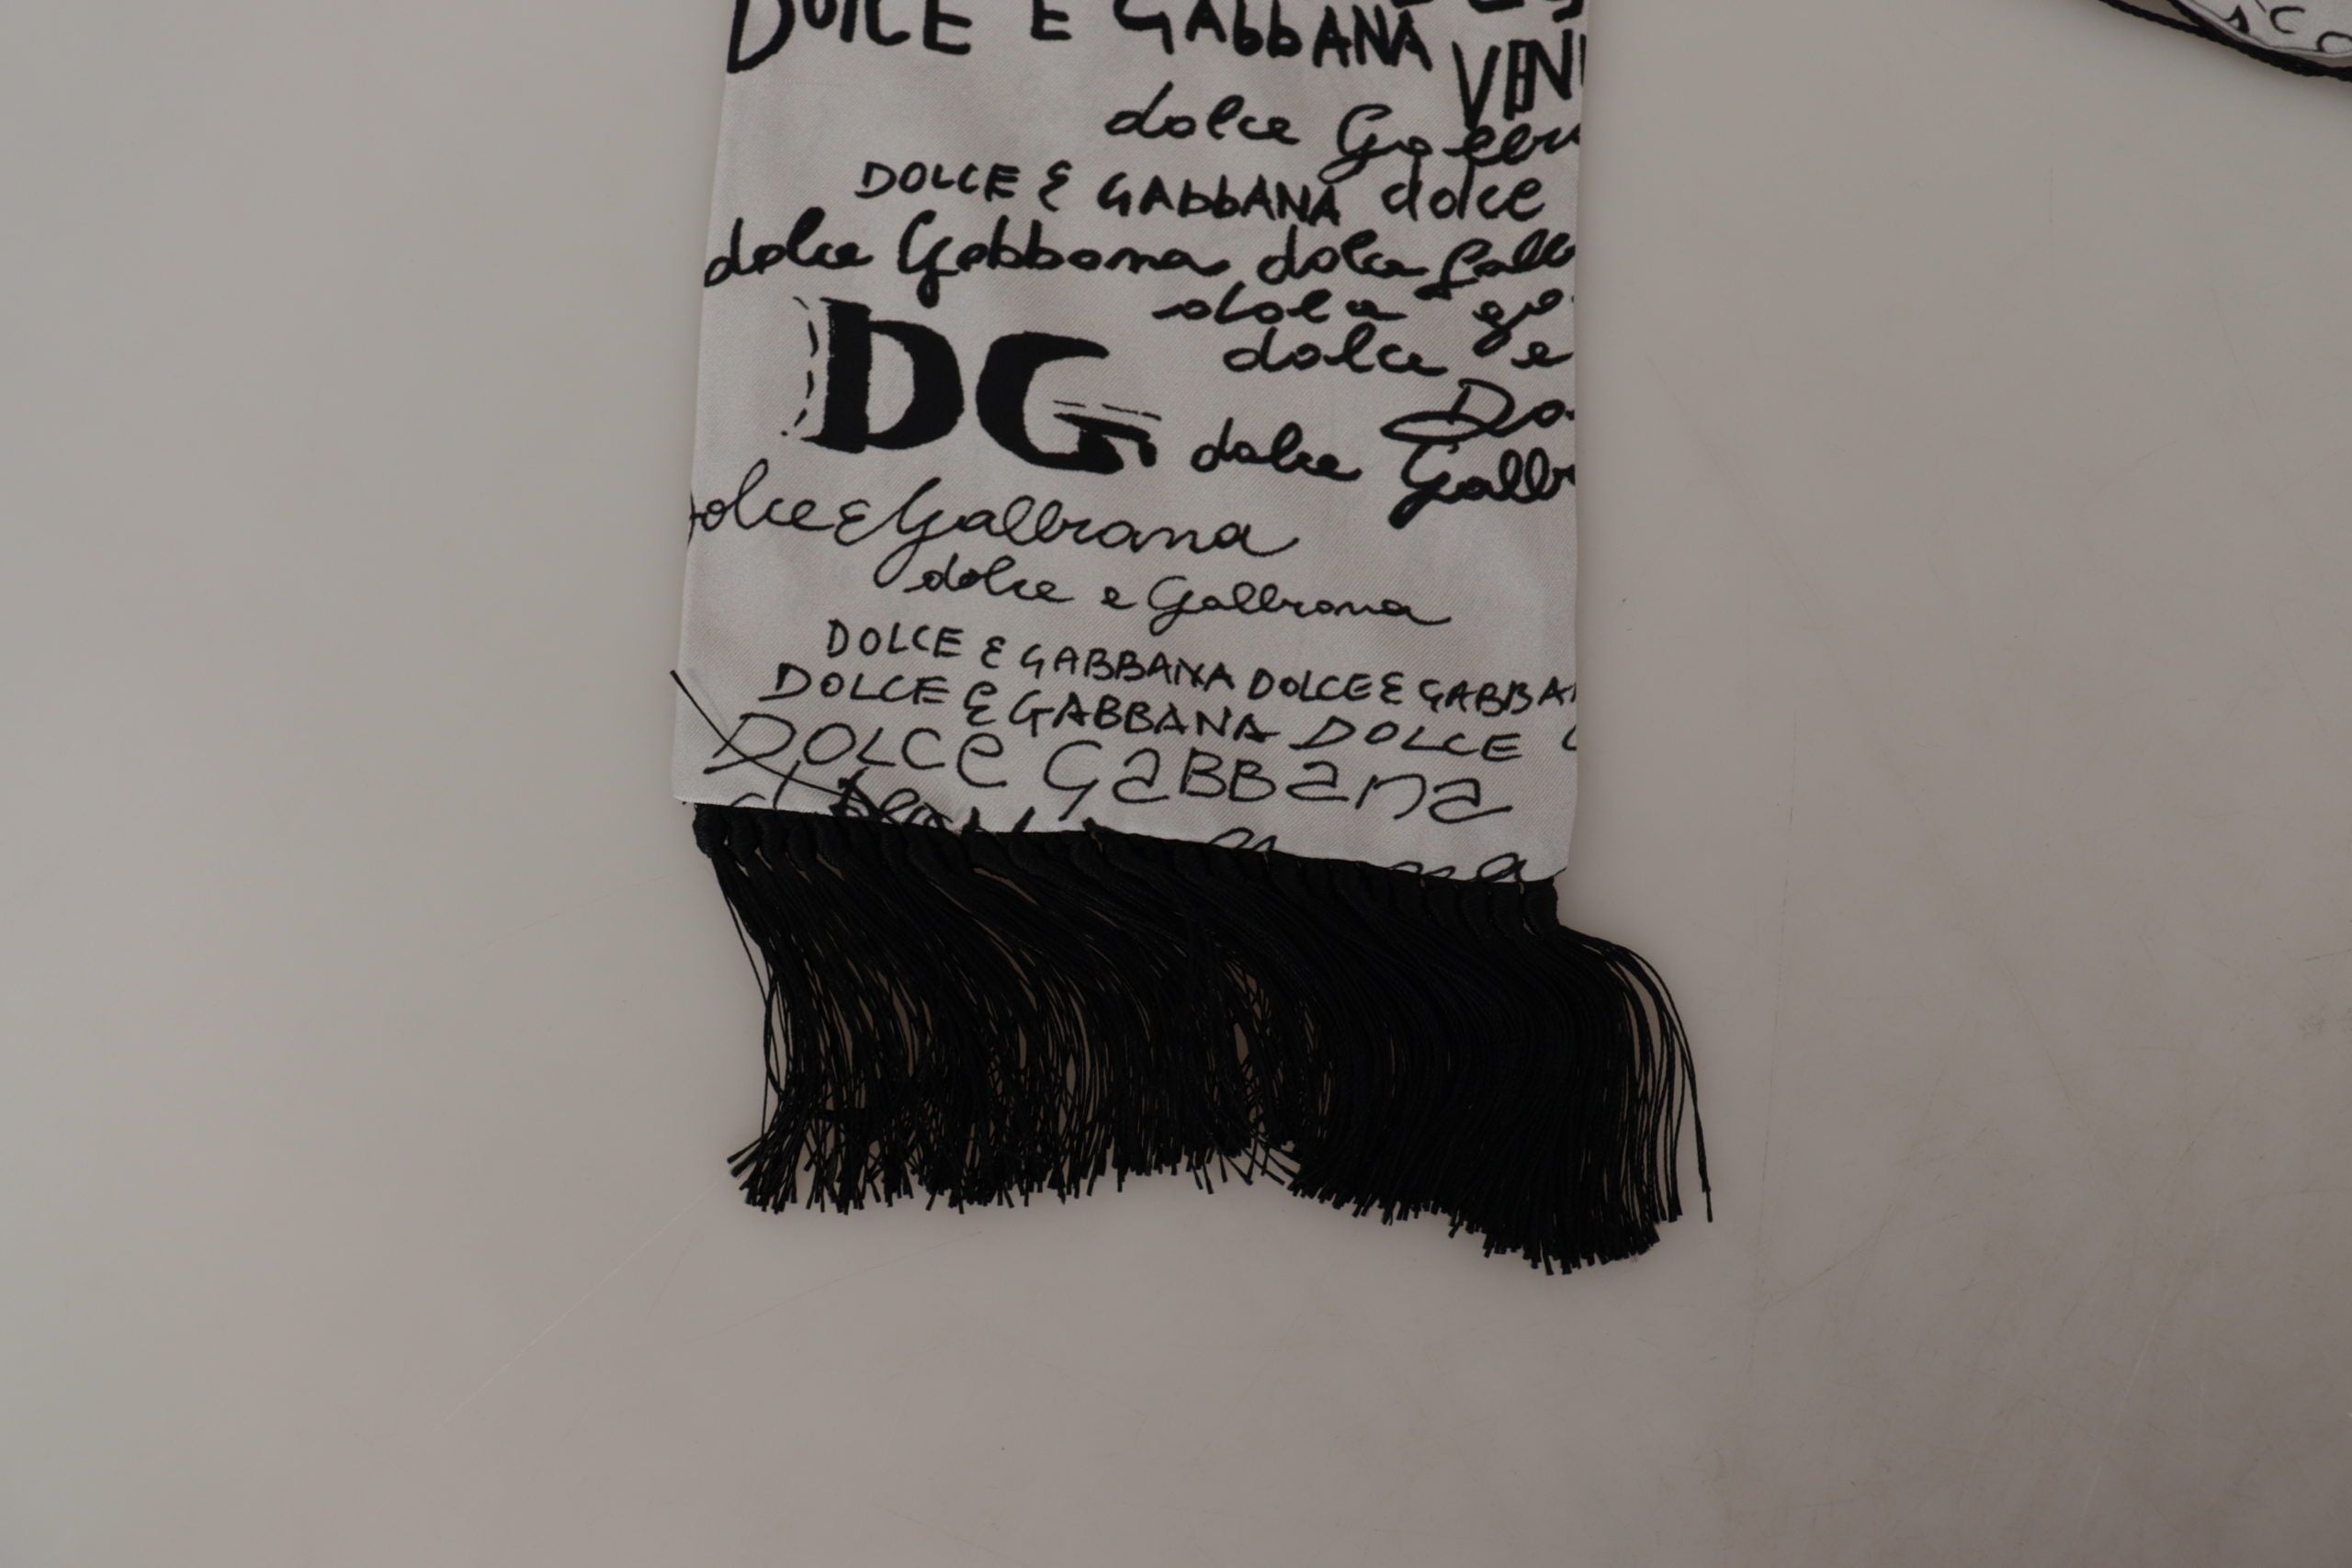 DOLCE E GABBANA
VIN
dolce Gabb
DOLCE E GABbANA dolce
dolce Gabbana dolce Gabb
dolce ga
dolce e
Do
DG dolce Gabb
olce E Gabbana
dolce e Gabbana
DOLCE E GABBANA DOLCE E GABBA
DOLCE E GABBANA DOLCE
DOLCE GaBBana